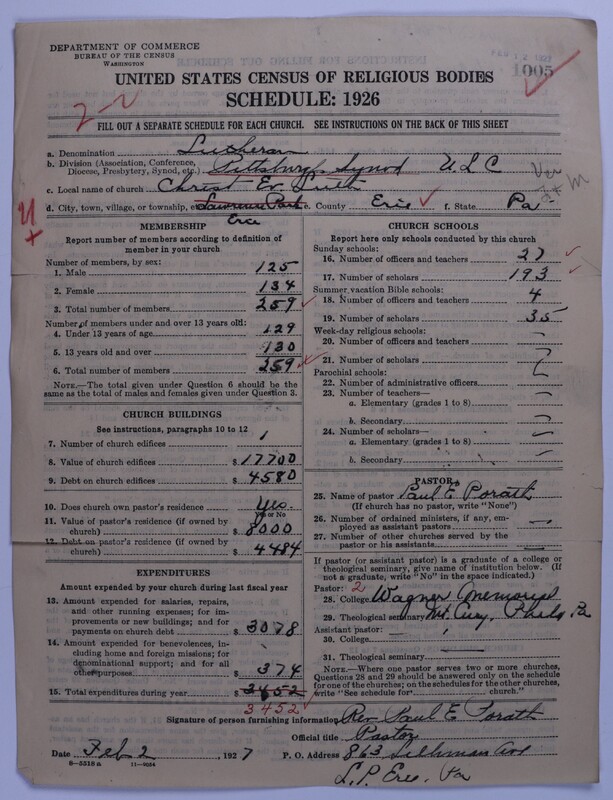 DEPARTMENT OF COMMERCE
BUREAU OF THE CENSUS
WASHINGTON
1005
UNITED STATES CENSUS OF RELIGIOUS BODIES
SCHEDULE: 1926
2-2
FILL OUT A SEPARATE SCHEDULE FOR EACH CHURCH. SEE INSTRUCTIONS ON THE BACK OF THIS SHEET
a. Denomination Lutheran
b. Division (Association, Conference, Diocese, Presbytery, Synod, etc.) Pittsburgh Synod U L C
c. Local name of church Christ Ev. Luth
d. City, town, village, or township, e Lawrence Park e. County Erie f. State Pa
Erie
MEMBERSHIP
Report number of members according to definition of
member in your church
Number of members, by sex:
1. Male 125
2. Female 134
3. Total number of members 259
Number of members under and over 13 years old:
4. Under 13 years of age 129
5. 13 years old and over 130
6. Total number of members 259
NOTE.—The total given under Question 6 should be the
same as the total of males and females given under Question 3.
CHURCH BUILDINGS
See instructions, paragraphs 10 to 12
7. Number of church edifices 1
8. Value of church edifices $ 17700
9. Debt on church edifices $ 4580
10. Does church own pastor's residence Yes.
Yes or No
11. Value of pastor's residence (if owned by
church) $ 8000
12. Debt on pastor's residence (if owned by
church) $ 4484
EXPENDITURES
Amount expended by your church during last fiscal year
13. Amount expended for salaries, repairs,
and other running expenses; for im-
provements or new buildings; and for
payments on church debt $ 3078
14. Amount expended for benevolences, in-
cluding home and foreign missions; for
denominational support; and for all
other purposes $ 374
15. Total expenditures during year $ 3452
3452
CHURCH SCHOOLS
Report here only schools conducted by this church
Sunday schools:
16. Number of officers and teachers 27
17. Number of scholars 193
Summer vacation Bible schools:
18. Number of officers and teachers 4
19. Number of scholars 35
Week-day religious schools:
20. Number of officers and teachers
21. Number of scholars
Parochial schools:
22. Number of administrative officers
23. Number of teachers—
a. Elementary (grades 1 to 8)
b. Secondary
24. Number of scholars—
a. Elementary (grades 1 to 8)
b. Secondary
PASTOR
25. Name of pastor Paul E Porath
(If church has no pastor, write "None")
26. Number of ordained ministers, if any, em-
ployed as assistant pastors
27. Number of other churches served by the
pastor or his assistants
If pastor (or assistant pastor) is a graduate of a college or
theological seminary, give name of institution below. (If
not a graduate, write "No" in the space indicated.)
Pastor: 2
28. College Wagner Memorial
29. Theological seminary Mt. Airy, Phila Pa
Assistant pastor:
30. College
31. Theological seminary
NOTE.—Where one pastor serves two or more churches,
Questions 28 and 29 should be answered only on the schedule
for one of the churches; on the schedules for the other churches,
write "See schedule for church."
Signature of person furnishing information Rev Paul E Porath
Official title Pastor
Date Feb 2, 1927 P. O. Address 863 Silliman Ave
8-5518a 11-9054
L.P. Erie, Pa